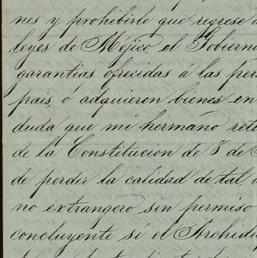 nes y prohibirle que regrese
leyes de Méjico el Gobierno
garantias ofrecidas á las per
pais, ó adquieren bienes en
duda que mi hermano
de la Constitucion de 8 de
de perder la calidad de tal,
no extrangero sin permiso
concluyente si el Archidu